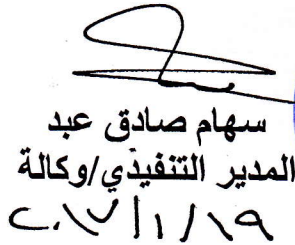 سهام صادق عبد
المدير التنفيذي/وكالة
٢٠١٧/١/١٩